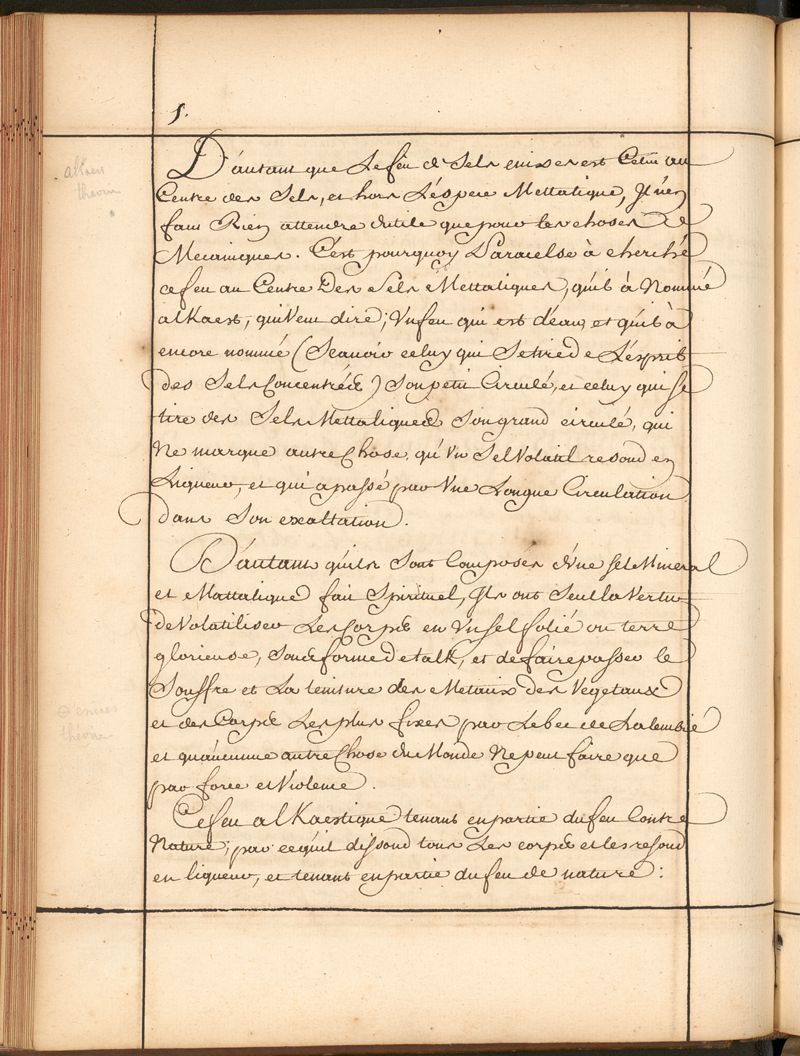 5.
D'autant que Le feu de Sels enixes est Celuy au
Centre des Sels, et hors L'éspece Mettalique, Jl n'en
faut Rien attendre d'utile que pour les choses de
Mecaniques. C'est pourquoy Paracelse à cherché
ce feu au Centre Des Sels Mettaliques, qu'il à Nommé
alKaest, qui Veut dire; Vn feu qui est d'eau, et qu'il à
encore nommé (Scauoir celuy qui Se tire de L'ésprit
des Sels Concentréé) Son petit Circulé, et celuy qui se
tire des Sels Mettaliques Son grand circulé, qui
Ne marque autre Chose, qu'Vn Sel Volatil resoud en
Liqueur, et qui a passé par Vne Longue Circulation
dans Son exaltation.
D'autant qu'ils Sont Composés d'Vne sel Mineral
et Mattalique fait Spirituel, Jls ont Seul la Vertu
de Volatiliser Les Corps en Vn sel folié ou terre
glorieuse, Sous forme de talk, et de faire passer le
Souffre et La teinture des Metaux des Vegetaux
et des Corps Les plus fixes par Le bec de L'alembic
et qu'aucune autre Chose du Monde Ne peut faire que
par force et Violence.
Ce feu alKaestique tenant en partie du feu Contre
Nature, par ce qu'il dissoud tous Les corps et les resoud
en liqueur, et tenant en partie du feu de nature: